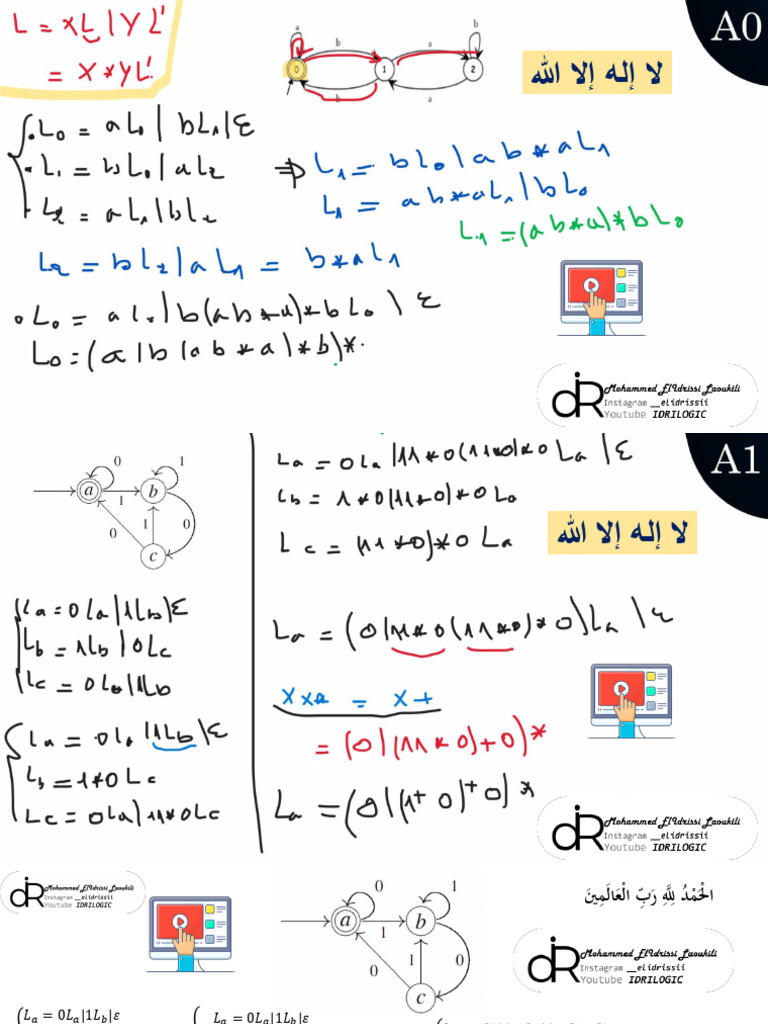 L = XL | Y L'
= X*YL'.
A0
a
b
a
b
0
1
2
b
a
لا إله إلا الله
L0 = aL0 | bL1 | ε
L1 = bL0 | aL2
L2 = aL1 | bL2
⇒ L1 = bL0 | ab*aL1
L1 = ab*aL1 | bL0
L1 = (ab*a)*bL0
L2 = bL2 | aL1 = b*aL1
L0 = aL0 | b(ab*a)*bL0 | ε
L0 = (a|b(ab*a)*b)*
Mohammed ElIdrissi Laoukili
Instagram __elidrissii
Youtube IDRILOGIC
A1
0
1
a
1
b
0
1
0
c
لا إله إلا الله
La = 0La | 1Lb | ε
Lb = 1Lb | 0Lc
Lc = 0La | 1Lb
La = 0La | 1Lb | ε
Lb = 1*0Lc
Lc = 0La | 11*0Lc
La = 0La | 11*0(11*0)*0La | ε
Lb = 1*0(11*0)*0La
Lc = (11*0)*0La
La = (0|11*0(11*0)*0)La | ε
XX* = X+
= (0|(11*0)+0)*
La = (0|(1+0)+0)*
Mohammed ElIdrissi Laoukili
Instagram __elidrissii
Youtube IDRILOGIC
Mohammed ElIdrissi Laoukili
Instagram __elidrissii
Youtube IDRILOGIC
0
1
a
1
b
0
1
0
c
الْحَمْدُ لِلَّهِ رَبِّ الْعَالَمِينَ
Mohammed ElIdrissi Laoukili
Instagram __elidrissii
Youtube IDRILOGIC
La = 0La|1Lb|ε
La = 0La|1Lb|ε